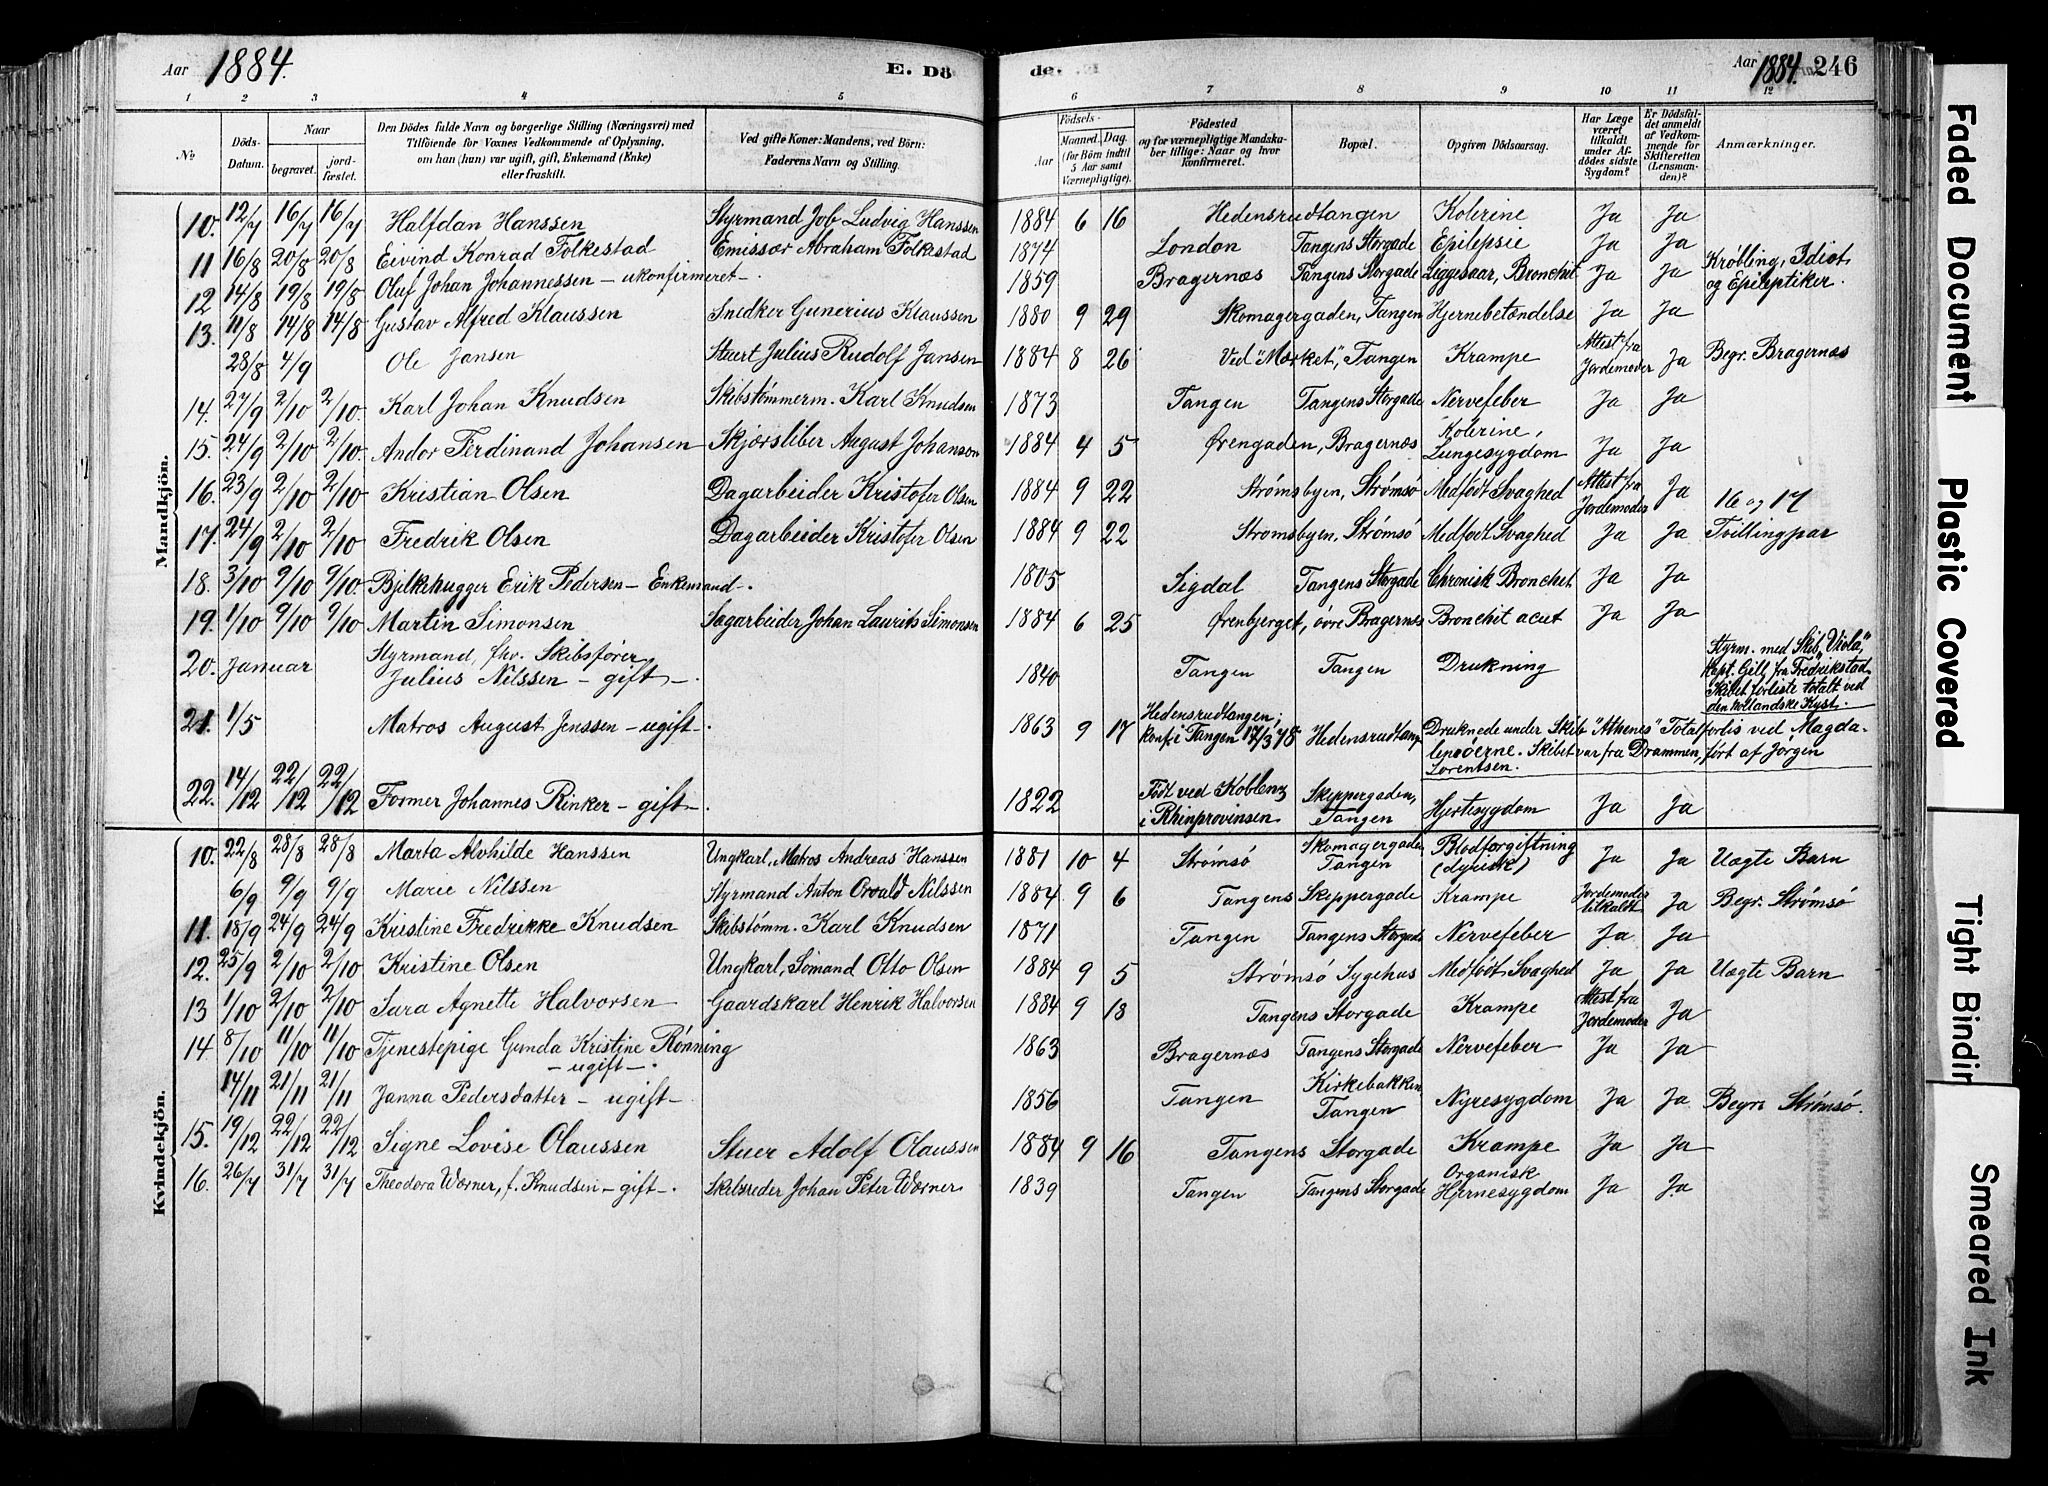 Aar 1884. E. Dö de. Aar 1884. 246
1 2 3 4 5 6 7 8 9 10 11 12
№ Döds-Datum. Naar begravet. jordfæstet. Den Dödes fulde Navn og borgerlige Stilling (Næringsvei) med Tilföiende for Voxnes Vedkommende af Oplysning, om han (hun) var ugift, gift, Enkemand (Enke) eller fraskilt. Ved gifte Koner: Mandens, ved Börn: Faderens Navn og Stilling. Födsels- Aar Maaned. Dag. (for Börn indtil 5 Aar samt Værnepligtige). Födested og for værnepligtige Mandskaber tillige: Naar og hvor konfirmeret. Bopæl. Opgiven Dödsaarsag. Har Læge været tilkaldt under Afdödes sidste Sygdom? Er Dödsfaldet anmeldt af Vedkommende for Skifteretten (Lensmanden)? Anmærkninger.
Mandkjön.
10. 12/7 16/7 16/7 Halfdan Hanssen Styrmand Job Ludvig Hanssen 1884 6 16 Hedensrudtangen Kolerine Ja Ja
11 16/8 20/8 20/8 Eivind Konrad Folkestad Emissær Abraham Folkestad 1874 London Tangens Storgade Epilepsie Ja Ja Krøbling, Idiot
12 14/8 19/8 19/8 Oluf Johan Johannessen – ukonfirmeret – 1859 Bragernæs Tangens Storgade Liggesaar, Bronchit Ja Ja og Epileptiker.
13. 11/8 14/8 14/8 Gustav Alfred Klaussen Snedker Gunerius Klaussen 1880 9 29 Skomagergaden, Tangen Hjernebetændelse Ja Ja
28/8 4/9 Ole Jansen Stuert Julius Rudolf Jansen 1884 8 26 Ved "Mærket", Tangen Krampe Attest fra Jordemoder Ja Begr. Bragernæs
14. 27/9 2/10 2/10. Karl Johan Knudsen Skibstømmerm. Karl Knudsen 1873 Tangen Tangens Storgade Nervefeber Ja Ja
15. 24/9 2/10 2/10. Andor Ferdinand Johansen Skjærsliber August Johanson 1884 4 5 Ørengaden, Bragernæs Kolerine, Lungesygdom Ja Ja
16. 23/9 2/10 2/10 Kristian Olsen Dagarbeider Kristofer Olsen 1884 9 22 Strømsbyen, Strømsø Medfødt Svaghed Attest fra Jordemoder Ja 16 og 17
17. 24/9 2/10 2/10 Fredrik Olsen Dagarbeider Kristofer Olsen 1884 9 22 Strømsbyen, Strømsø Medfødt Svaghed Ja Ja Tvillingpar
18. 3/10 9/10 9/10. Bjelkehugger Erik Pedersen – Enkemand –. 1805 Sigdal Tangens Storgade Chronisk Bronchit Ja Ja
19. 1/10 9/10 9/10 Martin Simonsen Sagarbeider Johan Laurits Simonsen 1884 6 25 Ørenbjerget, øvre Bragernæs Bronchit acut Ja Ja
20. Januar Styrmand, fhv. Skibsfører Julius Nilssen – gift –. 1840 Tangen Tangen Drukning Styrm. med Skib "Viola", Kapt. Gill fra Fredrikstad. Skibet forliste totalt ved den hollandske Kyst.
21. 1/5 Matros August Jenssen – ugift –. 1863 9 17 Hedensrudtangen; konf. i Tangen 17/3 78 Hedensrudtang Druknede under Skib "Athenes" Totalforlis ved Magdalenøerne. Skibet var fra Drammen, ført af Jørgen Lorentsen.
22. 14/12 22/12 22/12 Former Johannes Rinker – gift –. 1822 Født ved Koblenz i Rhinprovinsen Skippergaden, Tangen Hjertesygdom Ja Ja
Kvindekjön.
10. 22/8 28/8 28/8 Marta Alvhilde Hanssen Ungkarl, Matros Andreas Hanssen 1881 10 4 Strømsø Skomagergaden Tangen Blodforgiftning Ja Ja Uægte Barn
6/9 9/9 9/9 Marie Nilssen Styrmand Anton Osvald Nilssen 1884 9 6 Tangens Skippergade Krampe Jordemoder tilkaldt Ja Begr. Strømsø
11. 18/9 24/9 24/9 Kristine Fredrikke Knudsen Skibstømm. Karl Knudsen 1871 Tangen Tangens Storgade Nervefeber Ja Ja
12. 25/9 2/10 2/10 Kristine Olsen Ungkarl, Sømand Otto Olsen 1884 9 5 Strømsø Sygehus Medfødt Svaghed Ja Ja Uægte Barn
13 1/10 2/10 2/10 Sara Agnette Halvorsen Gaardskarl Henrik Halvorsen 1884 9 18 Tangens Storgade Krampe Attest fra Jordemoder Ja
14. 8/10 11/10 11/10 Tjenestepige Gunda Kristine Rønning – ugift –. 1863 Bragernæs Tangens Storgade Nervefeber Ja Ja
14/11 21/11 21/11 Janna Pedersdatter – ugift – 1856 Tangen Kirkebakken Tangen Nyresygdom Ja Ja Begr. Strømsø.
15. 19/12 22/12 22/12 Signe Lovise Olaussen Stuer Adolf Olaussen 1884 9 16 Tangens Storgade Krampe Ja Ja
16. 26/7 31/7 31/7 Theodora Wørner, f. Knudsen – gift –. Skibsreder Johan Peter Wørner 1839 Tangen Tangens Storgade Organisk Hjernesygdom Ja Ja
Faded Document
Plastic Covered
Tight Bindin
Smeared Ink